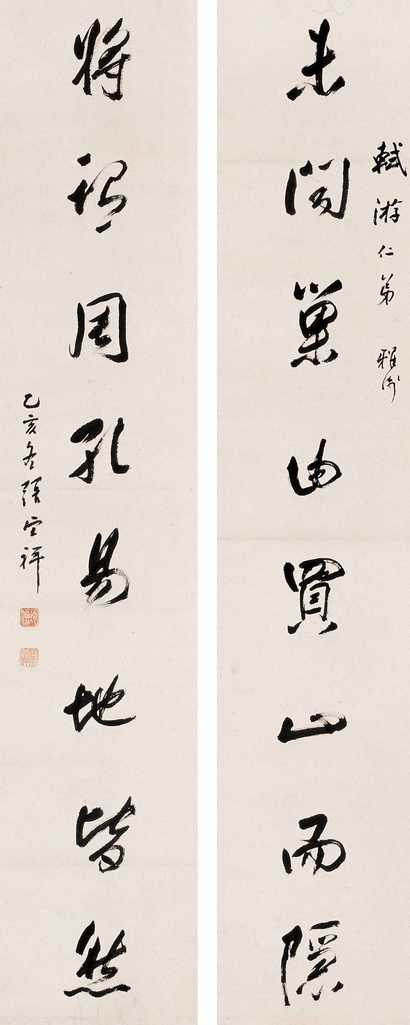 軾游仁弟 雅鉴
未闻巢由買山而隱
将謂周孔易地皆然
乙亥冬 張宗祥